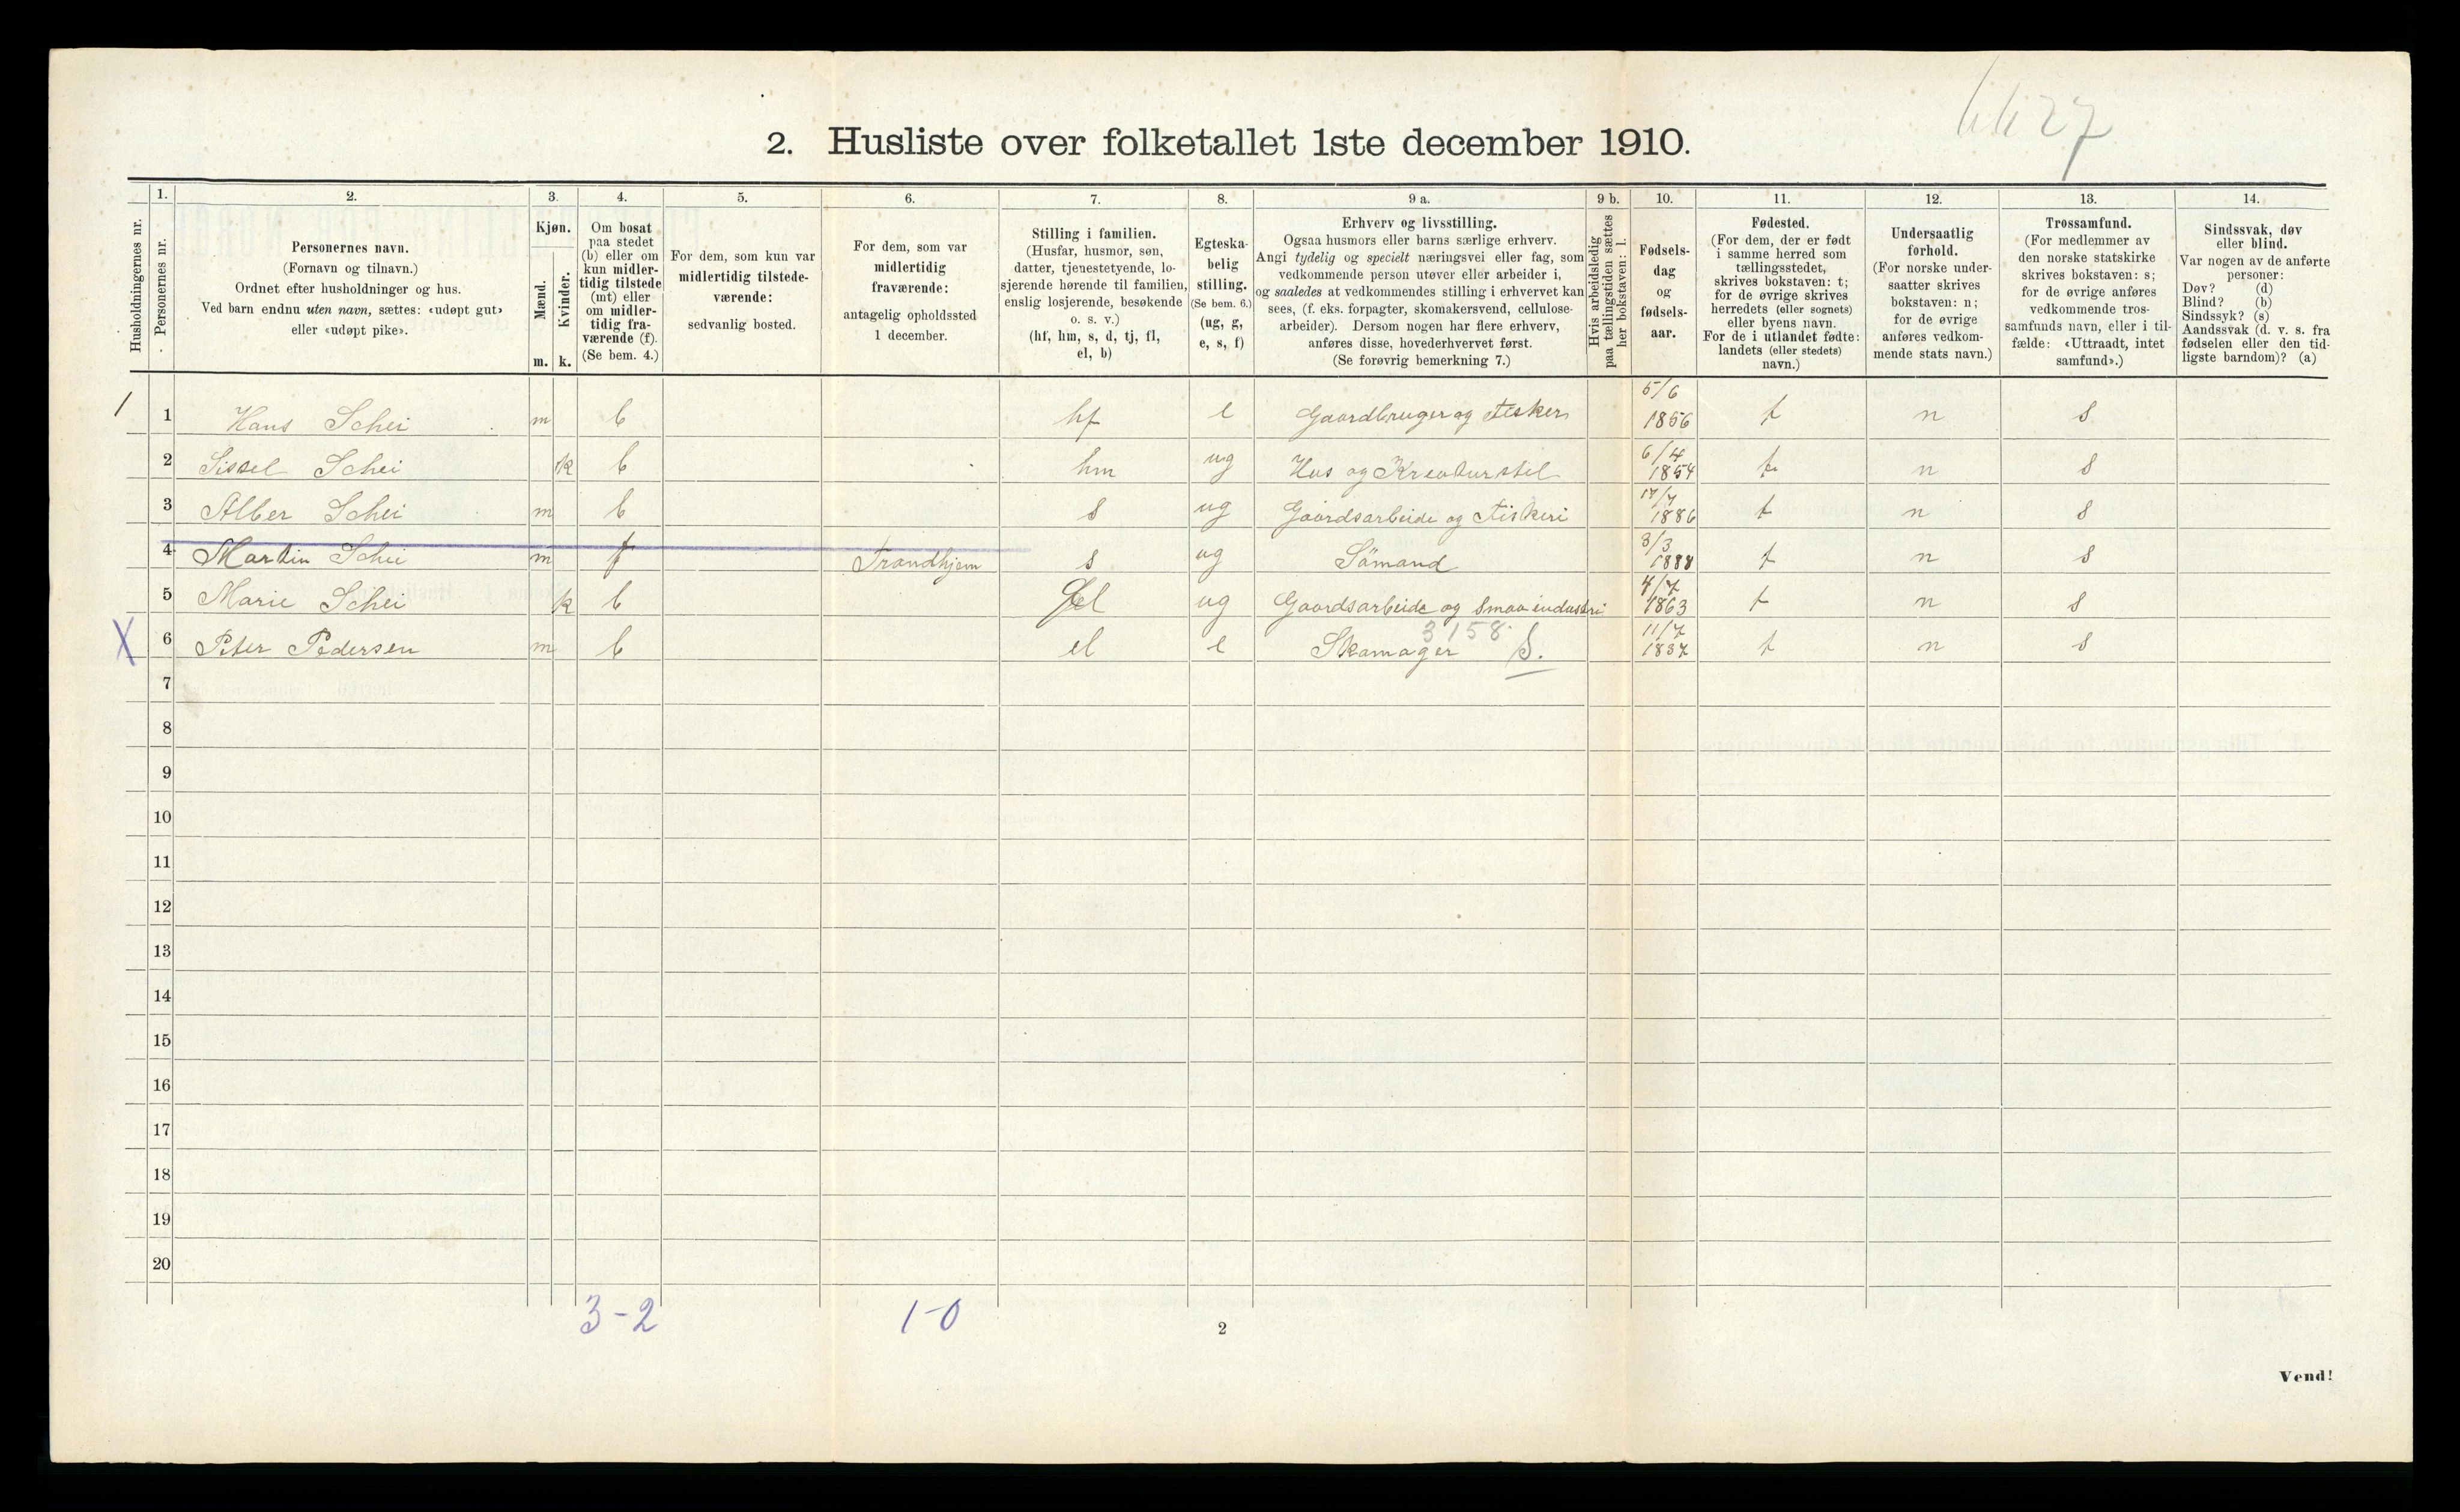 6627
2. Husliste over folketallet 1ste december 1910.
Husholdningernes nr.
1.
Personernes nr.
2.
Personernes navn.
(Fornavn og tilnavn.)
Ordnet efter husholdninger og hus.
Ved barn endnu uten navn, sættes: «udøpt gut»
eller «udøpt pike».
3.
Kjøn.
Mænd.
Kvinder.
m. k.
4.
Om bosat
paa stedet
(b) eller om
kun midler-
tidig tilstede
(mt) eller
om midler-
tidig fra-
værende (f).
(Se bem. 4.)
5.
For dem, som kun var
midlertidig tilstede-
værende:
sedvanlig bosted.
6.
For dem, som var
midlertidig
fraværende:
antagelig opholdssted
1 december.
7.
Stilling i familien.
(Husfar, husmor, søn,
datter, tjenestetyende, lo-
sjerende hørende til familien,
enslig losjerende, besøkende
o. s. v.)
(hf, hm, s, d, tj, fl,
el, b)
8.
Egteska-
belig
stilling.
(Se bem. 6.)
(ug, g,
e, s, f)
9 a.
Erhverv og livsstilling.
Ogsaa husmors eller barns særlige erhverv.
Angi tydelig og specielt næringsvei eller fag, som
vedkommende person utøver eller arbeider i,
og saaledes at vedkommendes stilling i erhvervet kan
sees, (f. eks. forpagter, skomakersvend, cellulose-
arbeider). Dersom nogen har flere erhverv,
anføres disse, hovederhvervet først.
(Se forøvrig bemerkning 7.)
9 b.
Hvis arbeidsledig
paa tællingstiden sættes
her bokstaven: l.
10.
Fødsels-
dag
og
fødsels-
aar.
11.
Fødested.
(For dem, der er født
i samme herred som
tællingsstedet,
skrives bokstaven: t;
for de øvrige skrives
herredets (eller sognets)
eller byens navn.
For de i utlandet fødte:
landets (eller stedets)
navn.)
12.
Undersaatlig
forhold.
(For norske under-
saatter skrives
bokstaven: n;
for de øvrige
anføres vedkom-
mende stats navn.)
13.
Trossamfund.
(For medlemmer av
den norske statskirke
skrives bokstaven: s;
for de øvrige anføres
vedkommende tros-
samfunds navn, eller i til-
fælde: «Uttraadt, intet
samfund».)
14.
Sindssvak, døv
eller blind.
Var nogen av de anførte
personer:
Døv? (d)
Blind? (b)
Sindssyk? (s)
Aandssvak (d. v. s. fra
fødselen eller den tid-
ligste barndom)? (a)
1 1 Hans Schei m b hf e Gaardbruger og Fisker 5/6 1856 t n s
2 Sissel Schei k b hm ug Hus og Kreaturstel 6/4 1854 t n s
3 Alber Schei m b s ug Gaardsarbeide og Fiskeri 17/7 1886 t n s
4 Martin Schei m f Trondhjem s ug Sömand 3/3 1888 t n s
5 Marie Schei k b el ug Gaardsarbeide og Smaaindustri 4/7 1863 t n s
X 6 Peter Pedersen m b el e Skomager 3158 S. 11/7 1837 t n s
7
8
9
10
11
12
13
14
15
16
17
18
19
20
3-2 1-0
2
Vend!